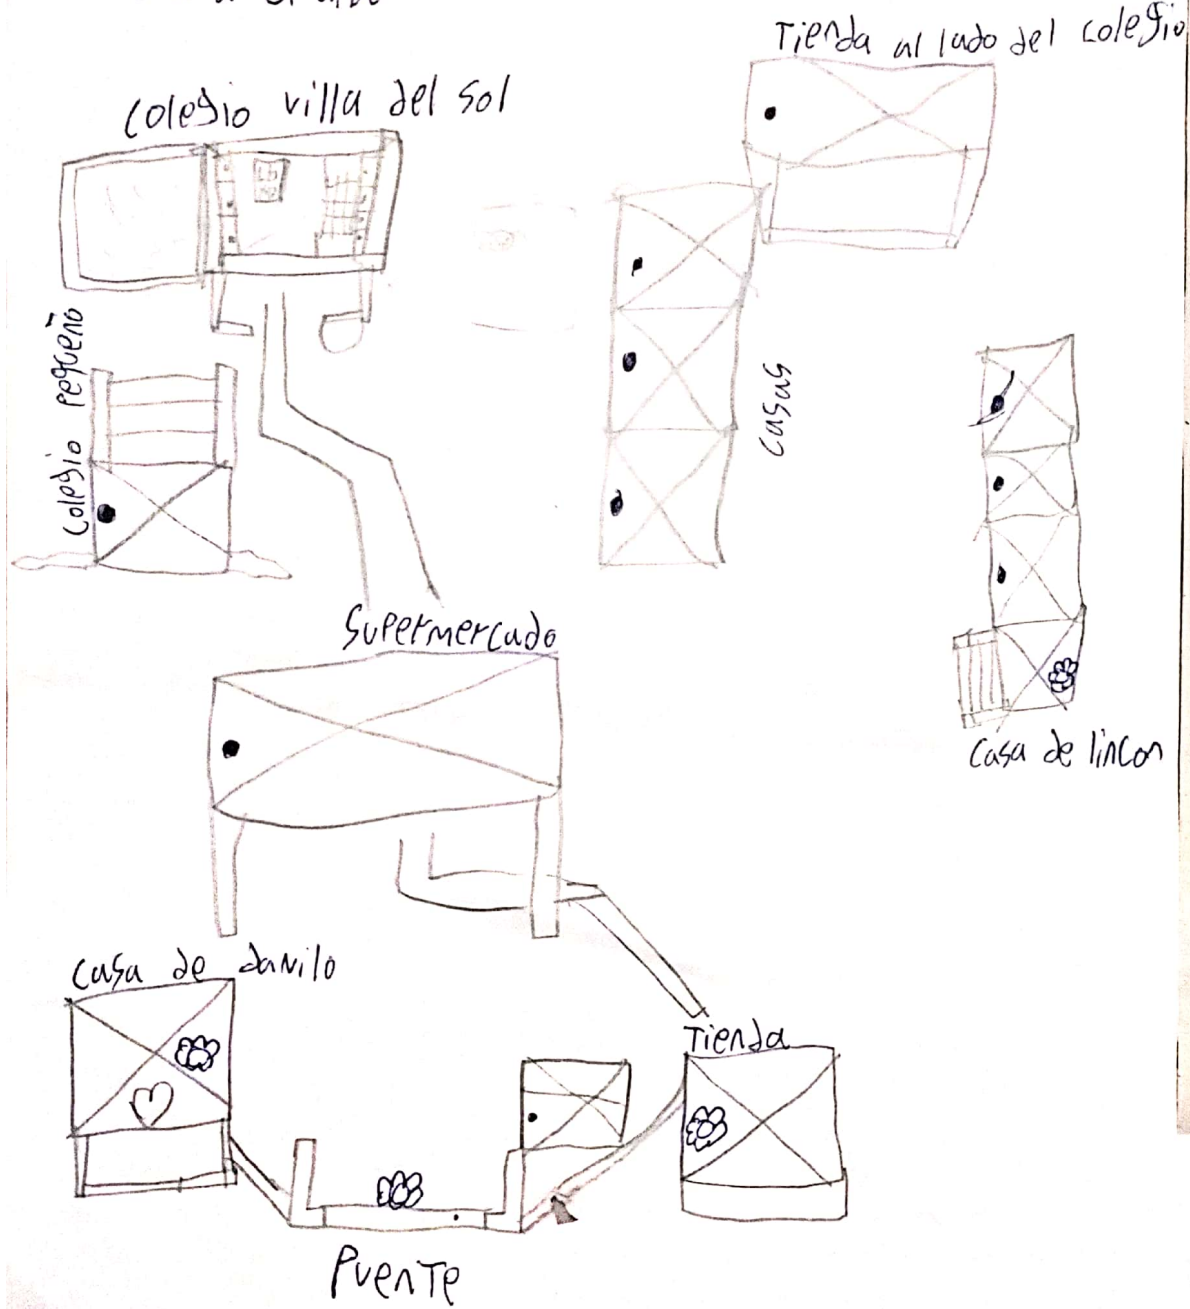 Tienda al lado del colegio
Colegio villa del sol
Colegio pequeño
casas
Supermercado
Casa de lincon
Casa de danilo
Tienda
Puente